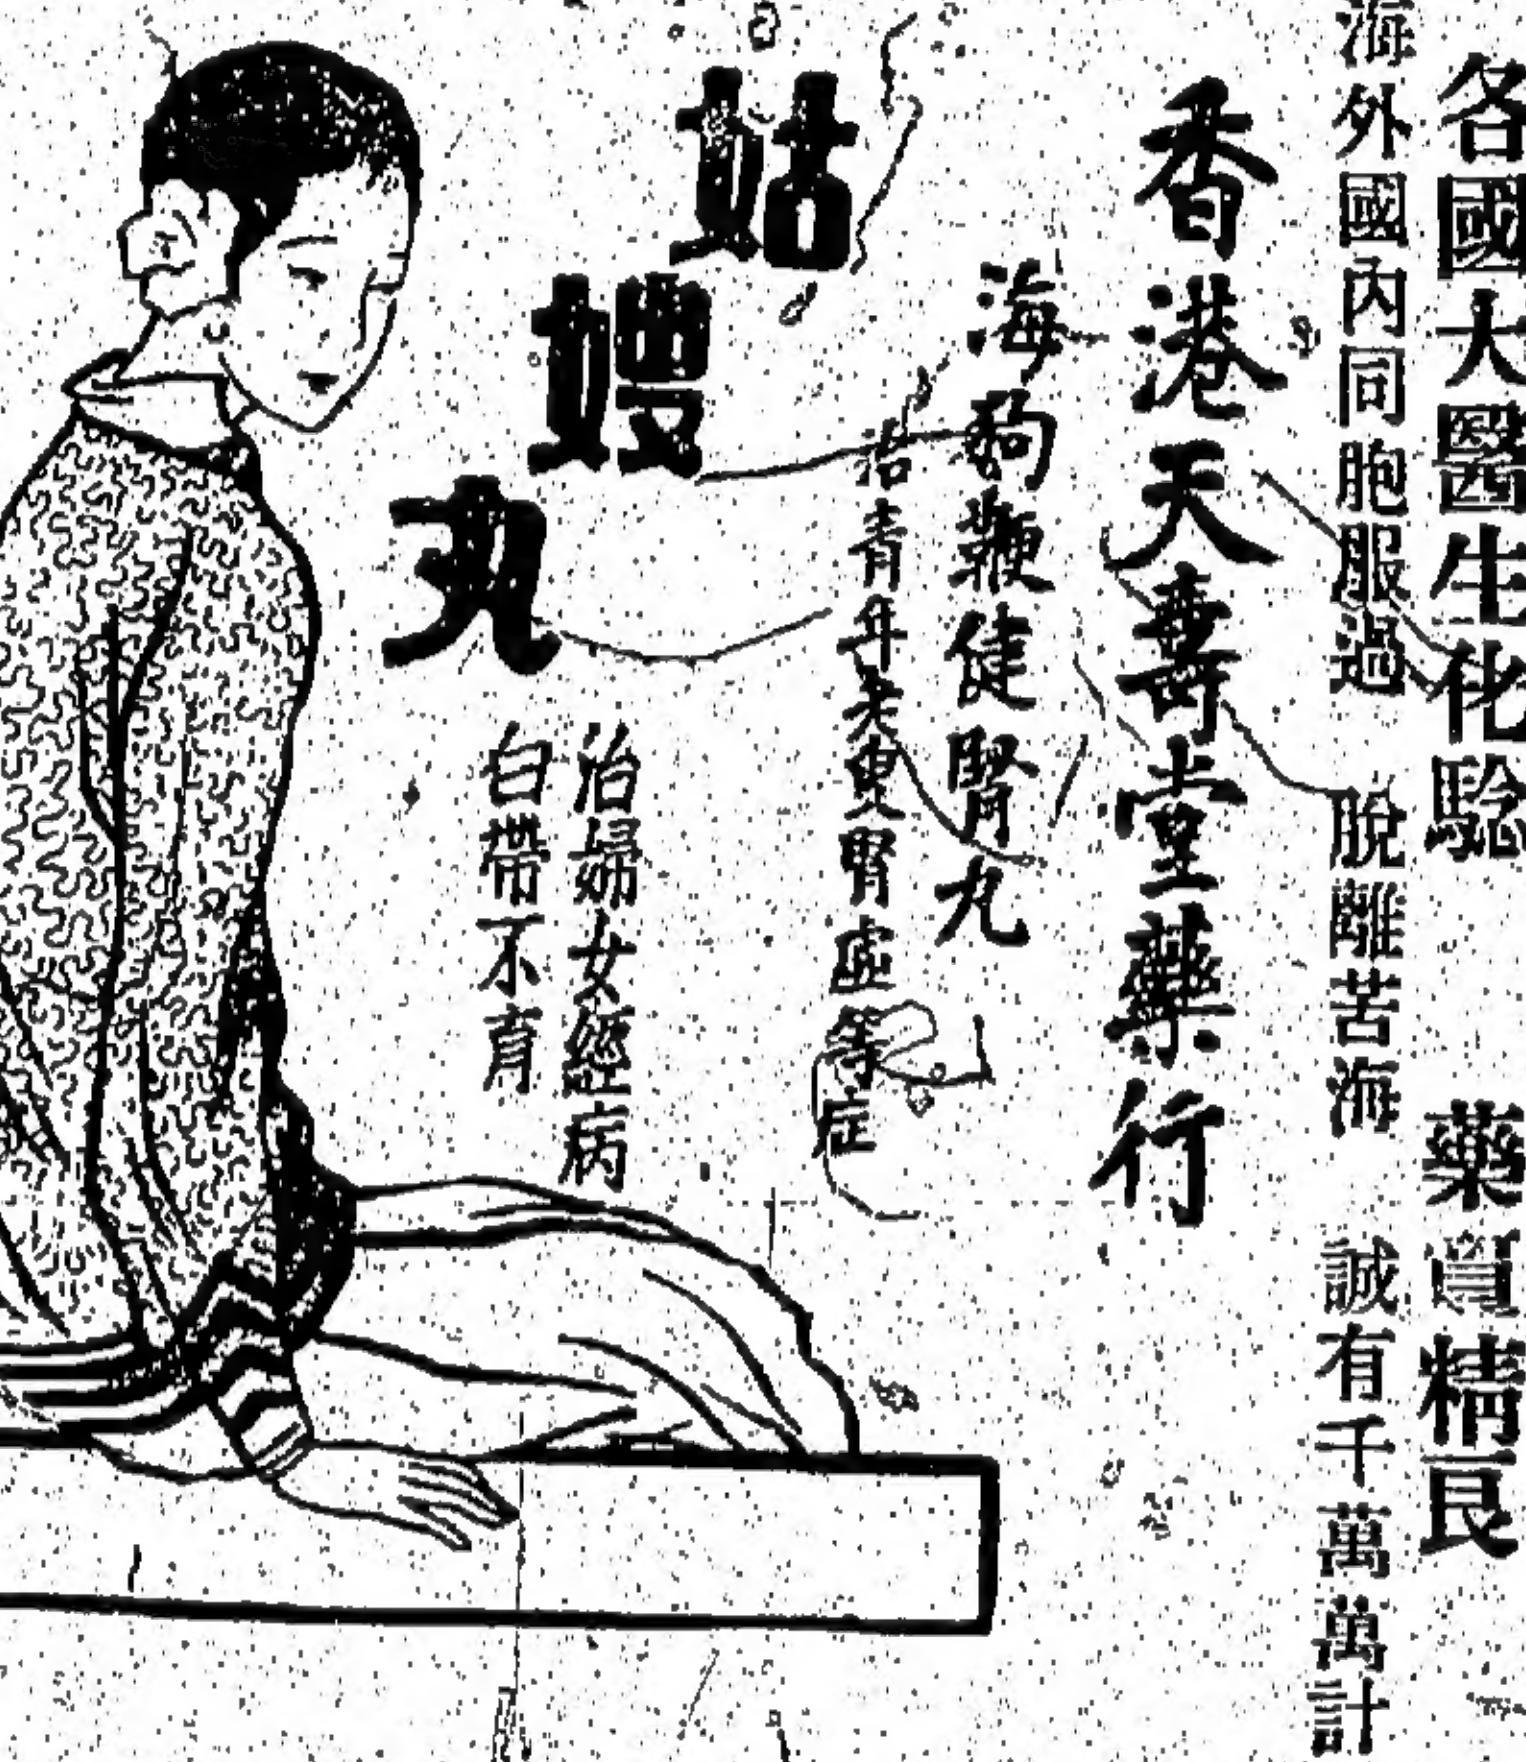 各國大醫生化騐　藥質精良
海外國內同胞服過　脫離苦海　誠有千萬萬計
香港天壽堂藥行
海狗鞭健腎丸
治青年老叟腎虛等症
姑嫂丸
治婦女經病
白帶不育